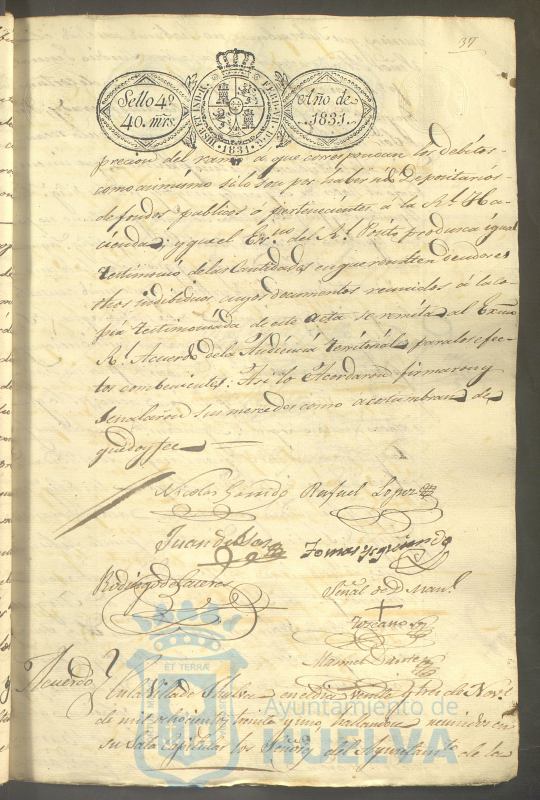 37
Sello 4º
40. mrs.
HISP. ET IND. R. FERD. VII D. G.
1831
Año de
1831.
precion del ramo a que correspondan los debitos
como asimismo si lo son por haber sido Depositarios
de fondos publicos ó pertenecientes á la Rl. Ha-
cienda: y que el Esno. del Rl. Posito produzca igual
testimonio de las Cantidades en que resulten deudores
otros individuos cuyos documentos reunidos á la co-
pia testimoniada de este acta se remita al Exmo.
Rl. Acuerdo de la Audiencia territorial para los efec-
tos combenientes: Asi lo Acordaron firmaron y
señalaron sus mercedes como acostumbran de
que doy fee
Nicolas Garrido Rafael Lopez
Juan de
Tomas
Rodrigo de Caceres
Señal de D. Manl.
Toscano
Manuel
Acuerdo
En la Villa de Huelva en el dia veinte y tres de Nove.
de mil ochocientos treinta y uno, hallandose reunidos en
su Sala Capitular los Señores del Ayuntamto. de la
ET TERRÆ
Ayuntamiento de
HUELVA